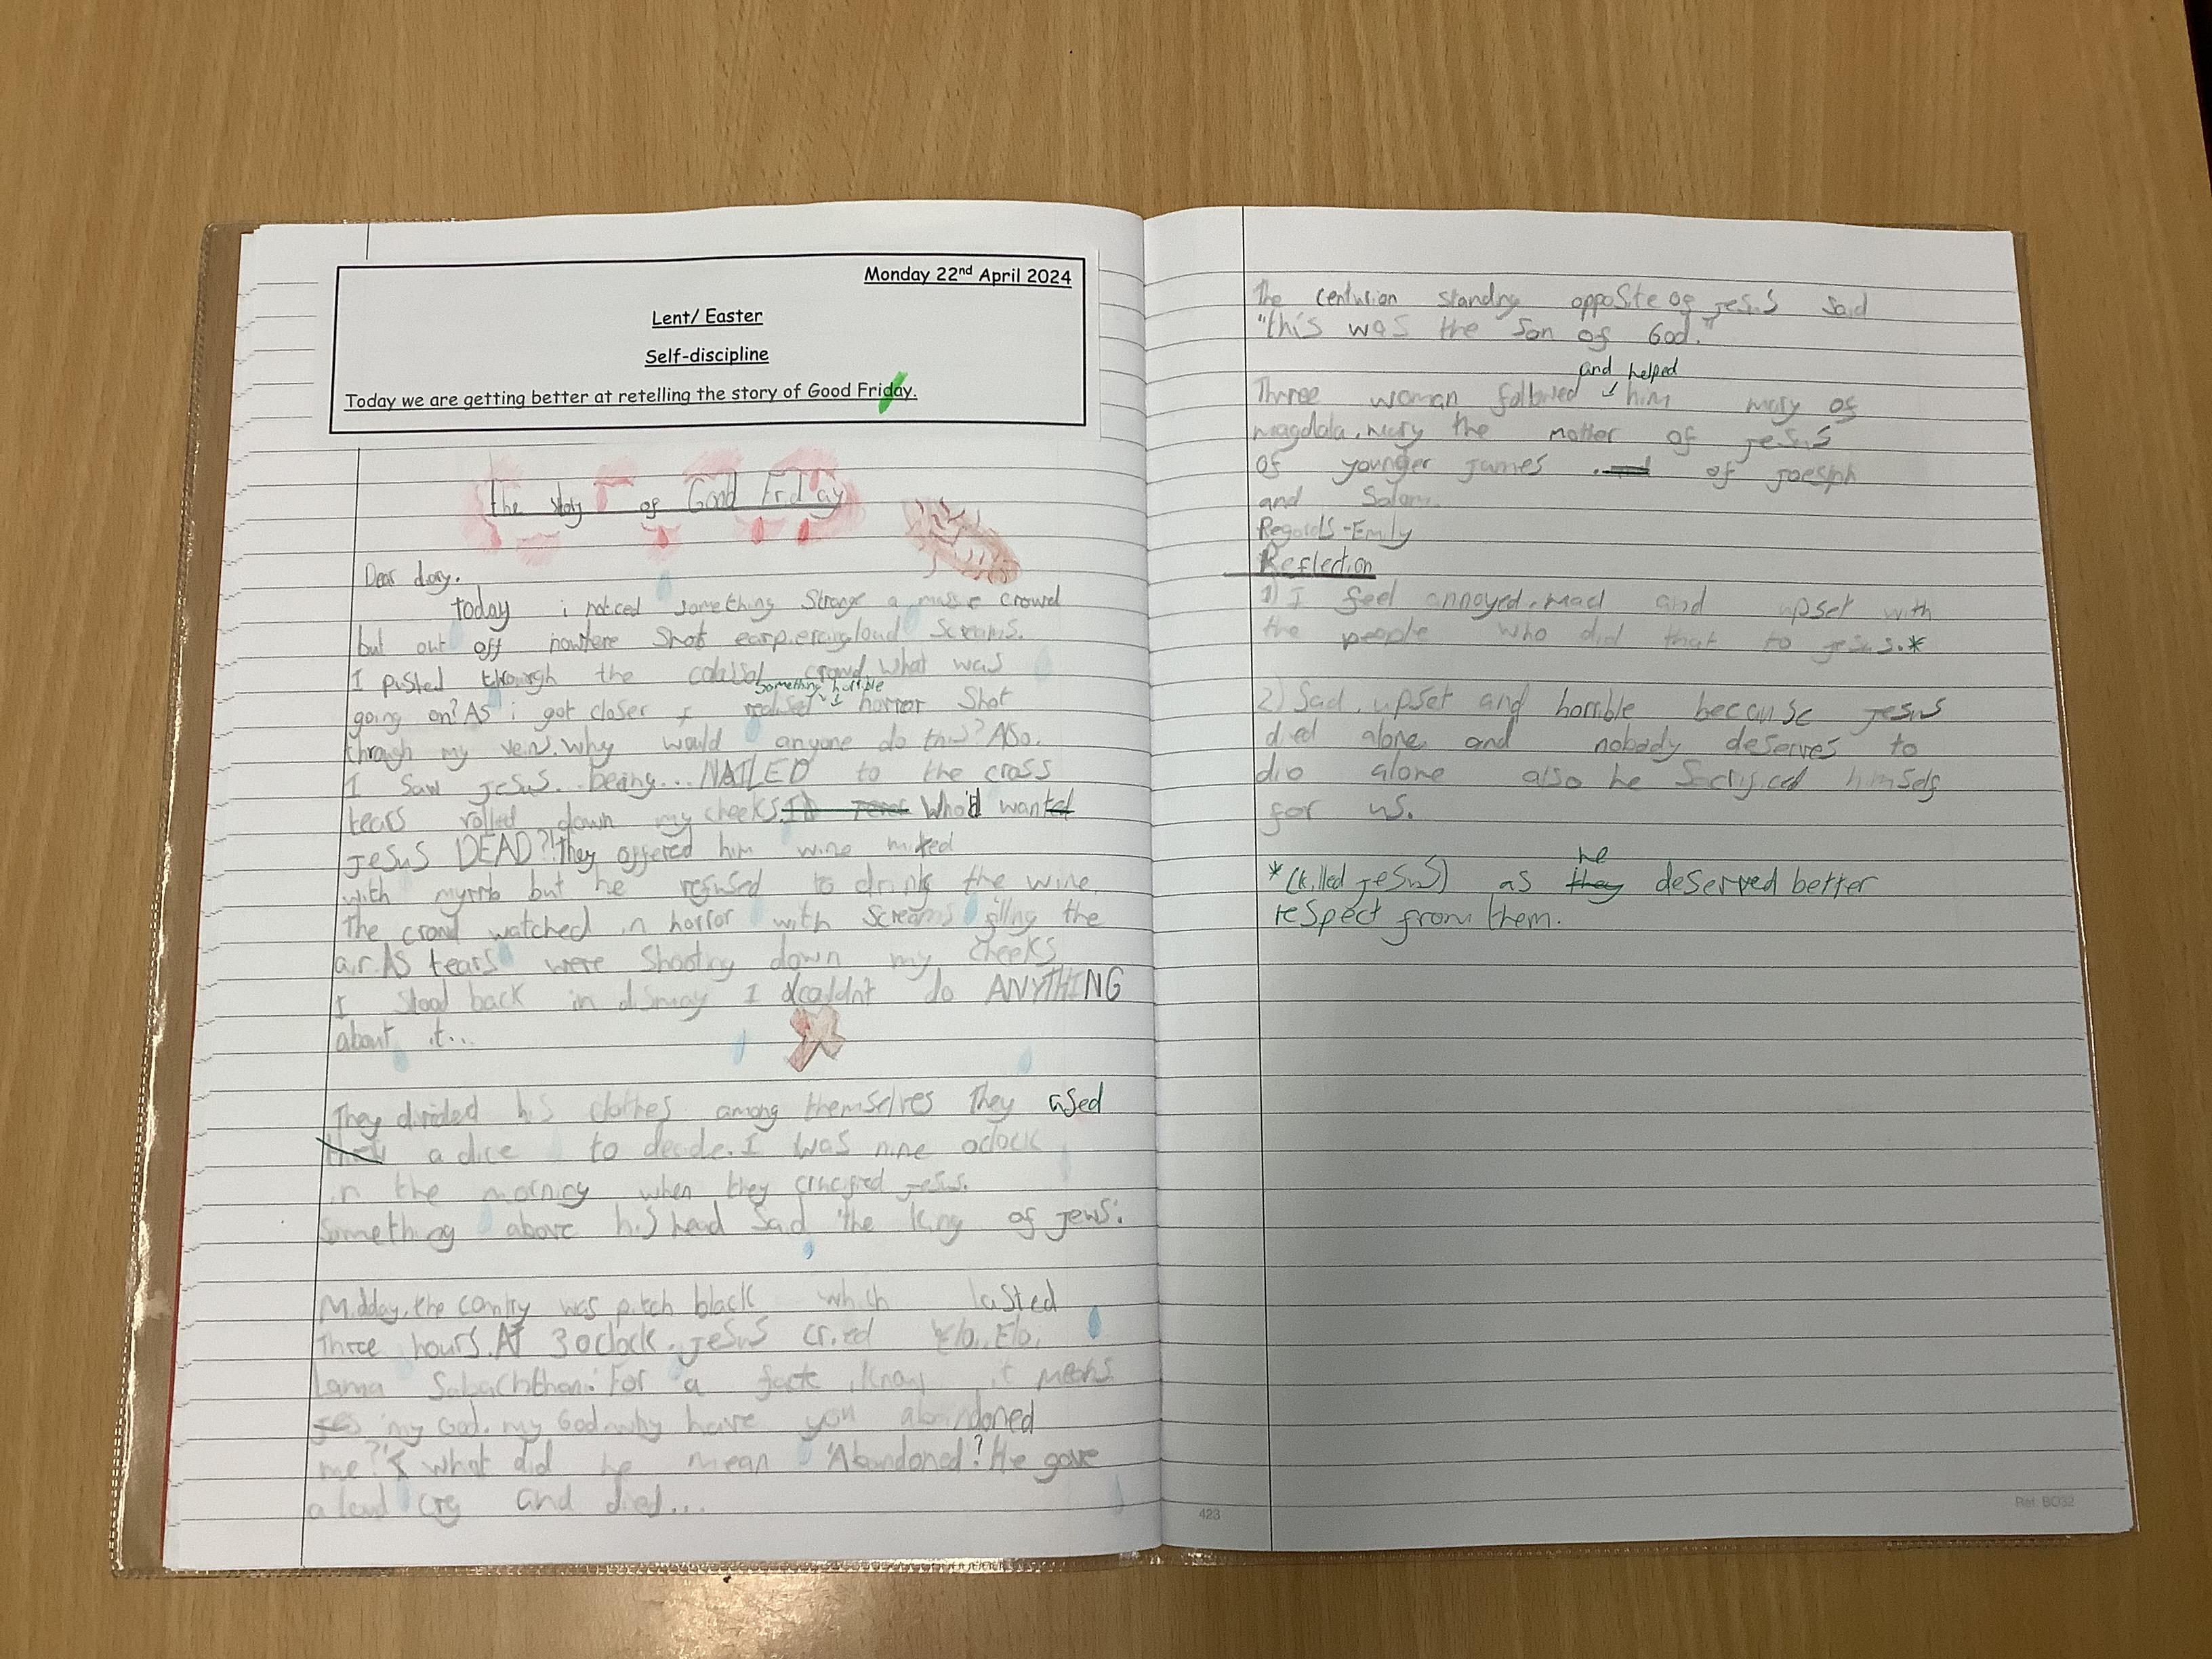 Monday 22nd April 2024
Lent/ Easter
Self-discipline
Today we are getting better at retelling the story of Good Friday.
The stoy of Good Friday
Dear diary.
today i noticed something Strange a masse crowd
but out off nowhere Shot earpiercingloud Screams.
I pushed through the colossal crowd. What was
something horrible
going on? As i got closer I realised horror Shot
through my veins. Why would anyone do this? Also.
I Saw Jesus... being... NAILED to the cross
tears rolled down my cheeks. Who'd want
Jesus DEAD?! They offered him wine mixed
with myrrh but he refused to drink the wine.
The crowd watched in horror with Screams filling the
air. AS tears were Shooting down my cheeks
I stood back in dismay I couldn't do ANYTHING
about it...
They divided his clothes among themselves They used
a dice to decide. I was nine oclock
in the morning when they crucified jesus.
Something above his head said 'the king of jews'.
Midday, the country was pitch black which lasted
Three hours. AT 3 oclock. jesus cried 'Eloi, Eloi,
Lama Sabachthani' For a fact i know it means
'my God, my God why have you abandoned
me?' What did he mean 'Abandoned'? He gave
a loud cry and died...
The centurion standing opposite of jesus said
"this was the Son of God."
and helped
Three woman followed him mary of
magdala, mary the mother of jesus
of younger james of joesph
and Salom.
Regards - Emily
Reflection
1) I feel annoyed, mad and upset with
the people who did that to jesus.*
2) Sad, upset and horrible because jesus
died alone and nobody deserves to
die alone also he Sacrificed himself
for us.
he
*(killed jesus) as they deserved better
respect from them.
423
Ref: BO32